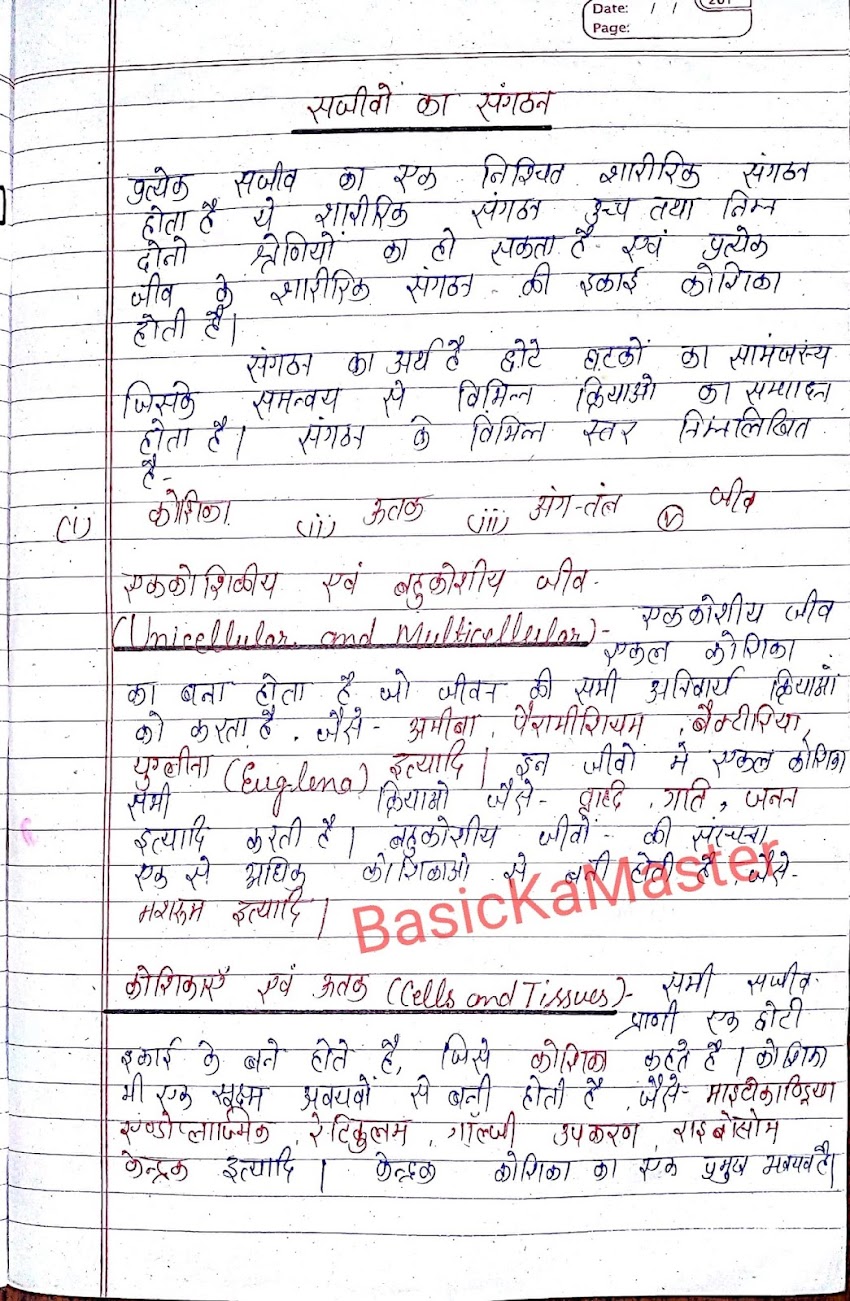 Date: / / 201
Page:
सजीवों का संगठन
प्रत्येक सजीव का एक निश्चित शारीरिक संगठन
होता है ये शारीरिक संगठन उच्च तथा निम्न
दोनो श्रेणियों का हो सकता है एवं प्रत्येक
जीव के शारीरिक संगठन की इकाई कोशिका
होती है।
संगठन का अर्थ है छोटे घटकों का सामंजस्य
जिसके समन्वय से विभिन्न क्रियाओ का सम्पादन
होता है। संगठन के विभिन्न स्तर निम्नलिखित
है-
(i) कोशिका (ii) ऊतक (iii) अंग-तंत्र (v) जीव
एककोशिकीय एवं बहुकोशीय जीव-
(Unicellular and Multicellular)- एककोशीय जीव
एकल कोशिका
का बना होता है जो जीवन की सभी अनिवार्य क्रियाओं
को करता है, जैसे- अमीबा, पैरामीशियम, बैक्टीरिया,
युग्लीना (Euglena) इत्यादि। इन जीवो मे एकल कोशिका
सभी क्रियाओ जैसे- वृद्धि, गति, जनन
इत्यादि करती है। बहुकोशीय जीवों- की संरचना
एक से अधिक कोशिकाओ से बनी होती है, जैसे-
मशरूम इत्यादि।
BasicKaMaster
कोशिकाएँ एवं ऊतक (Cells and Tissues)- सभी सजीव
प्राणी एक छोटी
इकाई के बने होते है, जिसे कोशिका कहते है। कोशिका
भी एक सूक्ष्म अवयवों से बनी होती है, जैसे- माइटोकाण्ड्रिया
एण्डोप्लाज्मिक, रेटिकुलम, गॉल्जी उपकरण, राइबोसोम
केन्द्रक इत्यादि। केन्द्रक कोशिका का एक प्रमुख अवयव है।